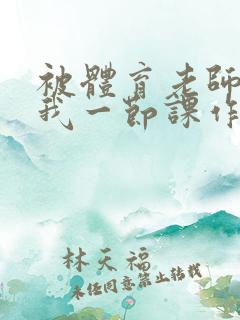 被體育老師
我一節課作
林天福
未經同意禁止轉載